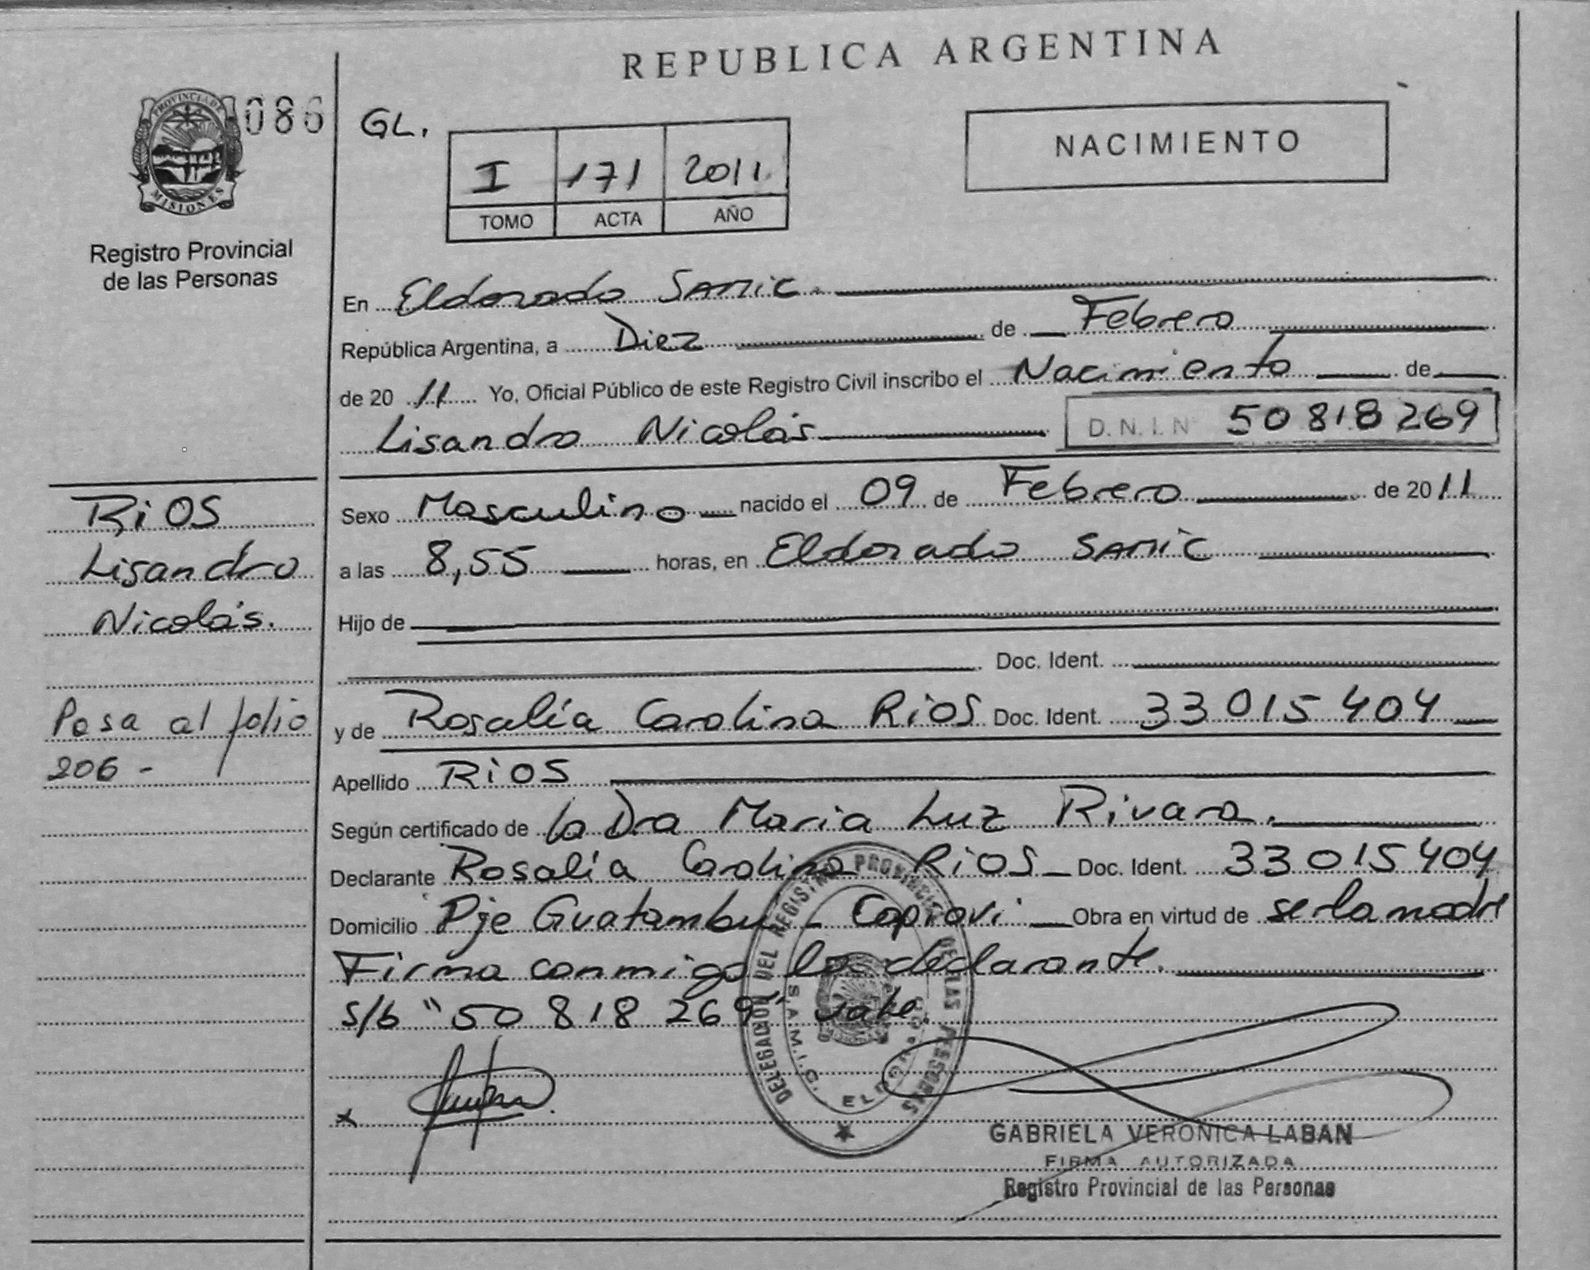 REPUBLICA ARGENTINA
PROVINCIA DE
MISIONES
086
GL.
I 171 2011.
TOMO ACTA AÑO
NACIMIENTO
Registro Provincial
de las Personas
En Eldorado SAMIC.
República Argentina, a Diez de Febrero
de 2011 Yo, Oficial Público de este Registro Civil inscribo el Nacimiento de
Lisandro Nicolás D.N.I. Nº 50 818 269
RiOS
Lisandro
Nicolás.
Pasa al folio
206 -
Sexo Masculino nacido el 09 de Febrero de 2011
a las 8,55 horas, en Eldorado SAMIC
Hijo de
Doc. Ident.
y de Rosalía Carolina RiOS Doc. Ident. 33 015 404
Apellido RiOS
Según certificado de la Dra Maria Luz Rivara.
Declarante Rosalía Carolina RiOS Doc. Ident. 33 015 404
Domicilio Pje Guatambu - Capiovi Obra en virtud de ser la madre
Firma conmigo la declarante.
s/b "50 818 269" vale.
DELEGACION DEL REGISTRO PROVINCIAL DE LAS PERSONAS
S.A.M.I.C. ELDORADO
x
GABRIELA VERONICA LABAN
FIRMA AUTORIZADA
Registro Provincial de las Personas